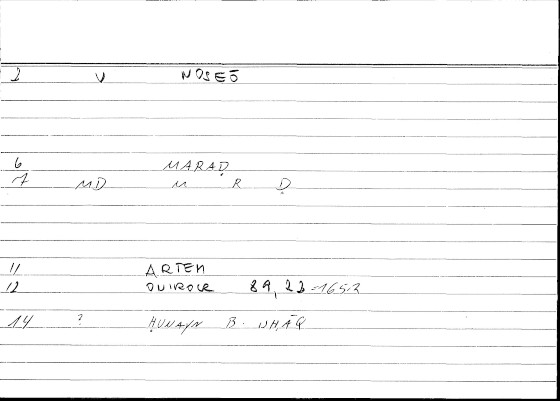 2 V NOSEŌ
6 MARAḌ
7 MD M R Ḍ
11 ARTEM
12 QUIROCE 89, 22-165,2
14 ? ḤUNAYN B. ISḤĀQ